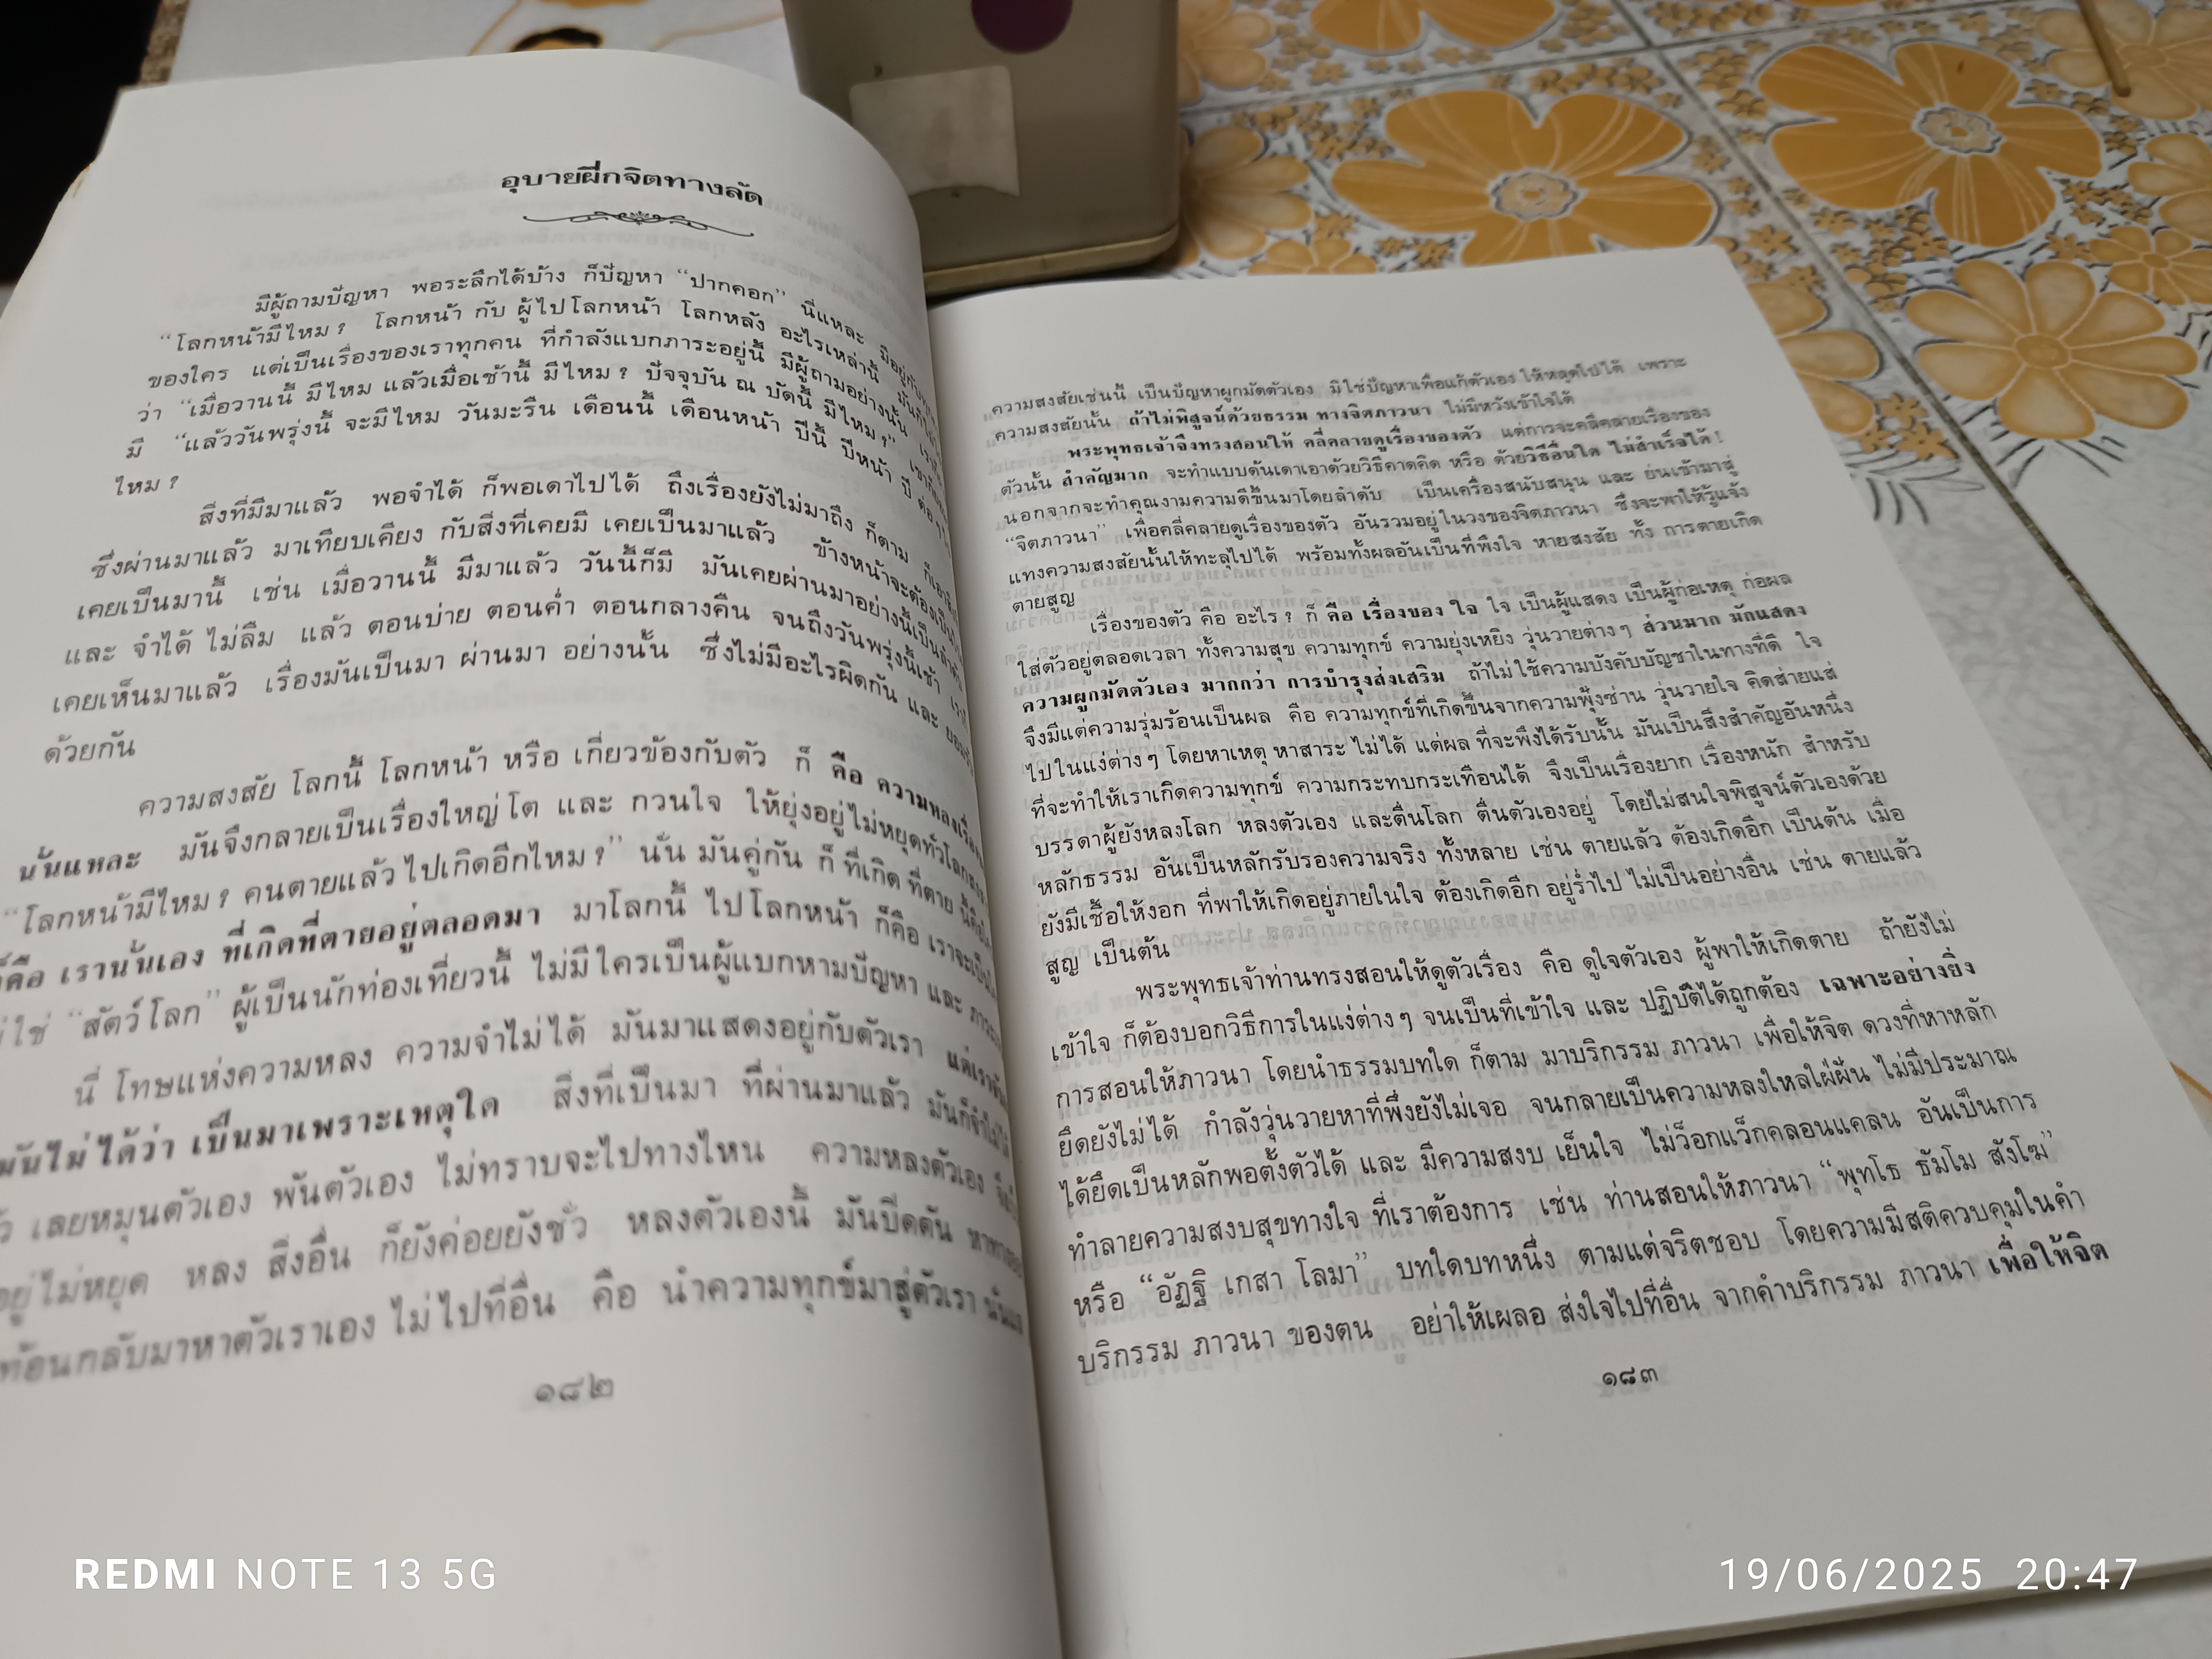 อุบายฝึกจิตทางลัด
มีผู้ถามปัญหา พอระลึกได้บ้าง ก็ปัญหา “ปากคอก” นี่แหละ มีอยู่กับทุกคน
“โลกหน้ามีไหม? โลกหน้า กับ ผู้ไปโลกหน้า โลกหลัง อะไรเหล่านี้
ของใคร แต่เป็นเรื่องของเราทุกคน ที่กำลังแบกภาระอยู่นี้ มีผู้ถามอย่างนั้น
ว่า “เมื่อวานนี้ มีไหม แล้วเมื่อเช้านี้ มีไหม? ปัจจุบัน ณ บัดนี้ มีไหม?”
มี “แล้ววันพรุ่งนี้ จะมีไหม วันมะรืน เดือนนี้ เดือนหน้า ปีนี้ ปีหน้า ปี ต่อๆ
ไหม?
สิ่งที่มีมาแล้ว พอจำได้ ก็พอเดาไปได้ ถึงเรื่องยังไม่มาถึง ก็ตาม
ซึ่งผ่านมาแล้ว มาเทียบเคียง กับสิ่งที่เคยมี เคยเป็นมาแล้ว ข้างหน้าจะต้องเป็น
เคยเป็นมานี้ เช่น เมื่อวานนี้ มีมาแล้ว วันนี้ก็มี มันเคยผ่านมาอย่างนี้เป็นลำดับ
และ จำได้ ไม่ลืม แล้ว ตอนบ่าย ตอนค่ำ ตอนกลางคืน จนถึงวันพรุ่งนี้เช้า
เคยเห็นมาแล้ว เรื่องมันเป็นมา ผ่านมา อย่างนั้น ซึ่งไม่มีอะไรผิดกัน และ
ด้วยกัน
ความสงสัย โลกนี้ โลกหน้า หรือ เกี่ยวข้องกับตัว ก็ คือ ความหลง
นั่นแหละ มันจึงกลายเป็นเรื่องใหญ่โต และ กวนใจ ให้ยุ่งอยู่ไม่หยุดทั่วโลก
“โลกหน้ามีไหม? คนตายแล้วไปเกิดอีกไหม?” นั่น มันคู่กัน ก็ ที่เกิด ที่ตาย
ก็คือ เรานั่นเอง ที่เกิดที่ตายอยู่ตลอดมา มาโลกนี้ ไปโลกหน้า ก็คือ เราจะเป็น
ใช่ “สัตว์โลก” ผู้เป็นนักท่องเที่ยวนี้ ไม่มีใครเป็นผู้แบกหามปัญหา และ
นี่ โทษแห่งความหลง ความจำไม่ได้ มันมาแสดงอยู่กับตัวเรา
มันไม่ได้ว่า เป็นมาเพราะเหตุใด สิ่งที่เป็นมา ที่ผ่านมาแล้ว มันก็จำไม่ได้
เลยหมุนตัวเอง พันตัวเอง ไม่ทราบจะไปทางไหน ความหลงตัวเอง
อยู่ไม่หยุด หลง สิ่งอื่น ก็ยังค่อยยังชั่ว หลงตัวเองนี้ มันปิดตัน
ท้อนกลับมาหาตัวเราเอง ไม่ไปที่อื่น คือ นำความทุกข์มาสู่ตัวเรา
๑๘๒
ความสงสัยเช่นนี้ เป็นปัญหาผูกมัดตัวเอง มิใช่ปัญหาเพื่อแก้ตัวเอง ให้หลุดไปได้ เพราะ
ความสงสัยนั้น ถ้าไม่พิสูจน์ด้วยธรรม ทางจิตภาวนา ไม่มีหวังเข้าใจได้
พระพุทธเจ้าจึงทรงสอนให้ คลี่คลายดูเรื่องของตัว แต่การจะคลี่คลายเรื่องของ
ตัวนั้น สำคัญมาก จะทำแบบด้นเดาเอาด้วยวิธีคาดคิด หรือ ด้วยวิธีอื่นใด ไม่สำเร็จได้!
นอกจากจะทำคุณงามความดีขึ้นมาโดยลำดับ เป็นเครื่องสนับสนุน และ ย่นเข้ามาสู่
“จิตภาวนา” เพื่อคลี่คลายดูเรื่องของตัว อันรวมอยู่ในวงของจิตภาวนา ซึ่งจะพาให้รู้แจ้ง
แทงความสงสัยนั้นให้ทะลุไปได้ พร้อมทั้งผลอันเป็นที่พึงใจ หายสงสัย ทั้ง การตายเกิด
ตายสูญ
เรื่องของตัว คือ อะไร? ก็ คือ เรื่องของ ใจ ใจ เป็นผู้แสดง เป็นผู้ก่อเหตุ ก่อผล
ใส่ตัวอยู่ตลอดเวลา ทั้งความสุข ความทุกข์ ความยุ่งเหยิง วุ่นวายต่างๆ ส่วนมาก มักแสดง
ความผูกมัดตัวเอง มากกว่า การบำรุงส่งเสริม ถ้าไม่ใช้ความบังคับบัญชาในทางที่ดี ใจ
จึงมีแต่ความรุ่มร้อนเป็นผล คือ ความทุกข์ที่เกิดขึ้นจากความฟุ้งซ่าน วุ่นวายใจ คิดส่ายแส่
ไปในแง่ต่างๆ โดยหาเหตุ หาสาระ ไม่ได้ แต่ผล ที่จะพึงได้รับนั้น มันเป็นสิ่งสำคัญอันหนึ่ง
ที่จะทำให้เราเกิดความทุกข์ ความกระทบกระเทือนได้ จึงเป็นเรื่องยาก เรื่องหนัก สำหรับ
บรรดาผู้ยังหลงโลก หลงตัวเอง และตื่นโลก ตื่นตัวเองอยู่ โดยไม่สนใจพิสูจน์ตัวเองด้วย
หลักธรรม อันเป็นหลักรับรองความจริง ทั้งหลาย เช่น ตายแล้ว ต้องเกิดอีก เป็นต้น เมื่อ
ยังมีเชื้อให้งอก ที่พาให้เกิดอยู่ภายในใจ ต้องเกิดอีก อยู่ร่ำไป ไม่เป็นอย่างอื่น เช่น ตายแล้ว
สูญ เป็นต้น
พระพุทธเจ้าท่านทรงสอนให้ดูตัวเรื่อง คือ ดูใจตัวเอง ผู้พาให้เกิดตาย ถ้ายังไม่
เข้าใจ ก็ต้องบอกวิธีการในแง่ต่างๆ จนเป็นที่เข้าใจ และ ปฏิบัติได้ถูกต้อง เฉพาะอย่างยิ่ง
การสอนให้ภาวนา โดยนำธรรมบทใด ก็ตาม มาบริกรรม ภาวนา เพื่อให้จิต ดวงที่หาหลัก
ยึดยังไม่ได้ กำลังวุ่นวายหาที่พึ่งยังไม่เจอ จนกลายเป็นความหลงใหลใฝ่ฝัน ไม่มีประมาณ
ได้ยึดเป็นหลักพอตั้งตัวได้ และ มีความสงบ เย็นใจ ไม่ว็อกแว็กคลอนแคลน อันเป็นการ
ทำลายความสงบสุขทางใจ ที่เราต้องการ เช่น ท่านสอนให้ภาวนา “พุทโธ ธัมโม สังโฆ”
หรือ “อัฏฐิ เกสา โลมา” บทใดบทหนึ่ง ตามแต่จริตชอบ โดยความมีสติควบคุมในคำ
บริกรรม ภาวนา ของตน อย่าให้เผลอ ส่งใจไปที่อื่น จากคำบริกรรม ภาวนา เพื่อให้จิต
๑๘๓
REDMI NOTE 13 5G
19/06/2025 20:47